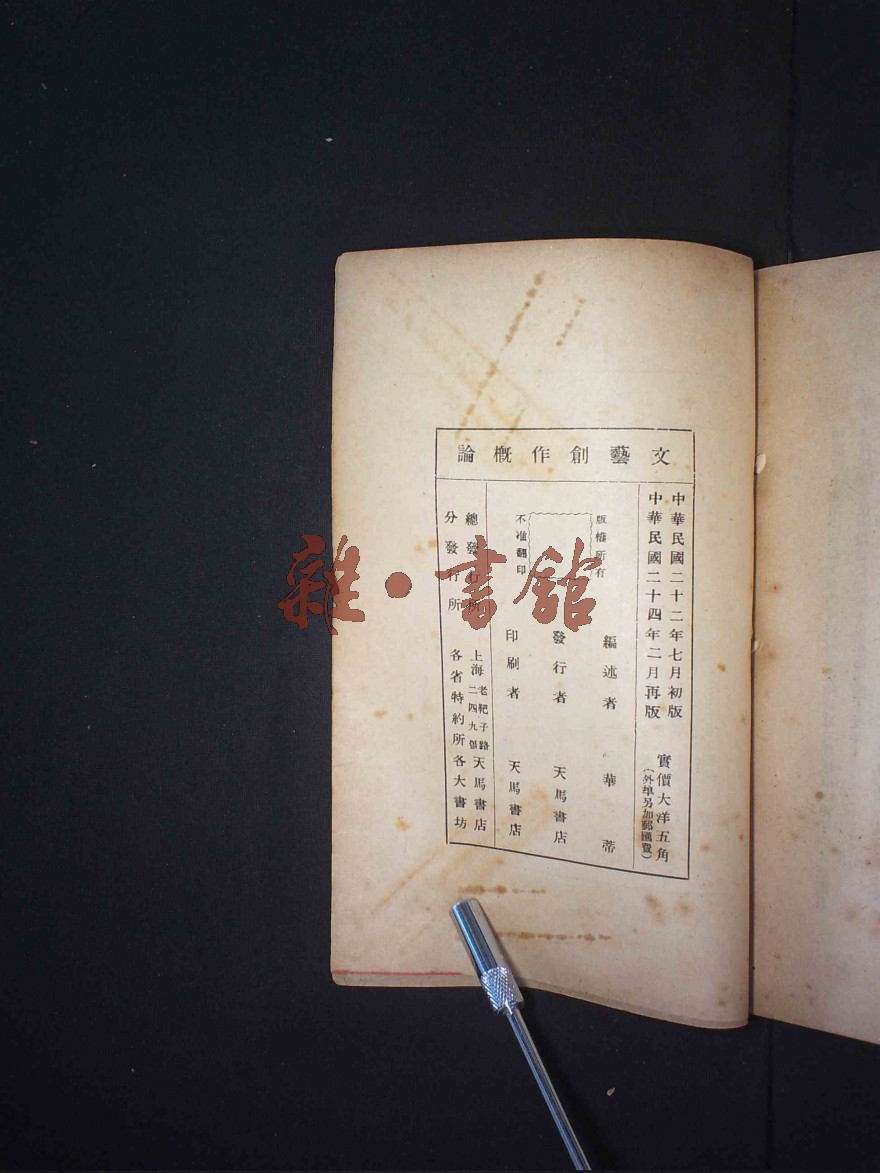 文藝創作概論
中華民國二十二年七月初版
中華民國二十四年二月再版
實價大洋五角
(外埠另加郵匯費)
版權所有
不准翻印
編述者 華蒂
發行者 天馬書店
印刷者 天馬書店
總發行所 上海老靶子路二四九號天馬書店
分發行所 各省特約所各大書坊
雜·書館